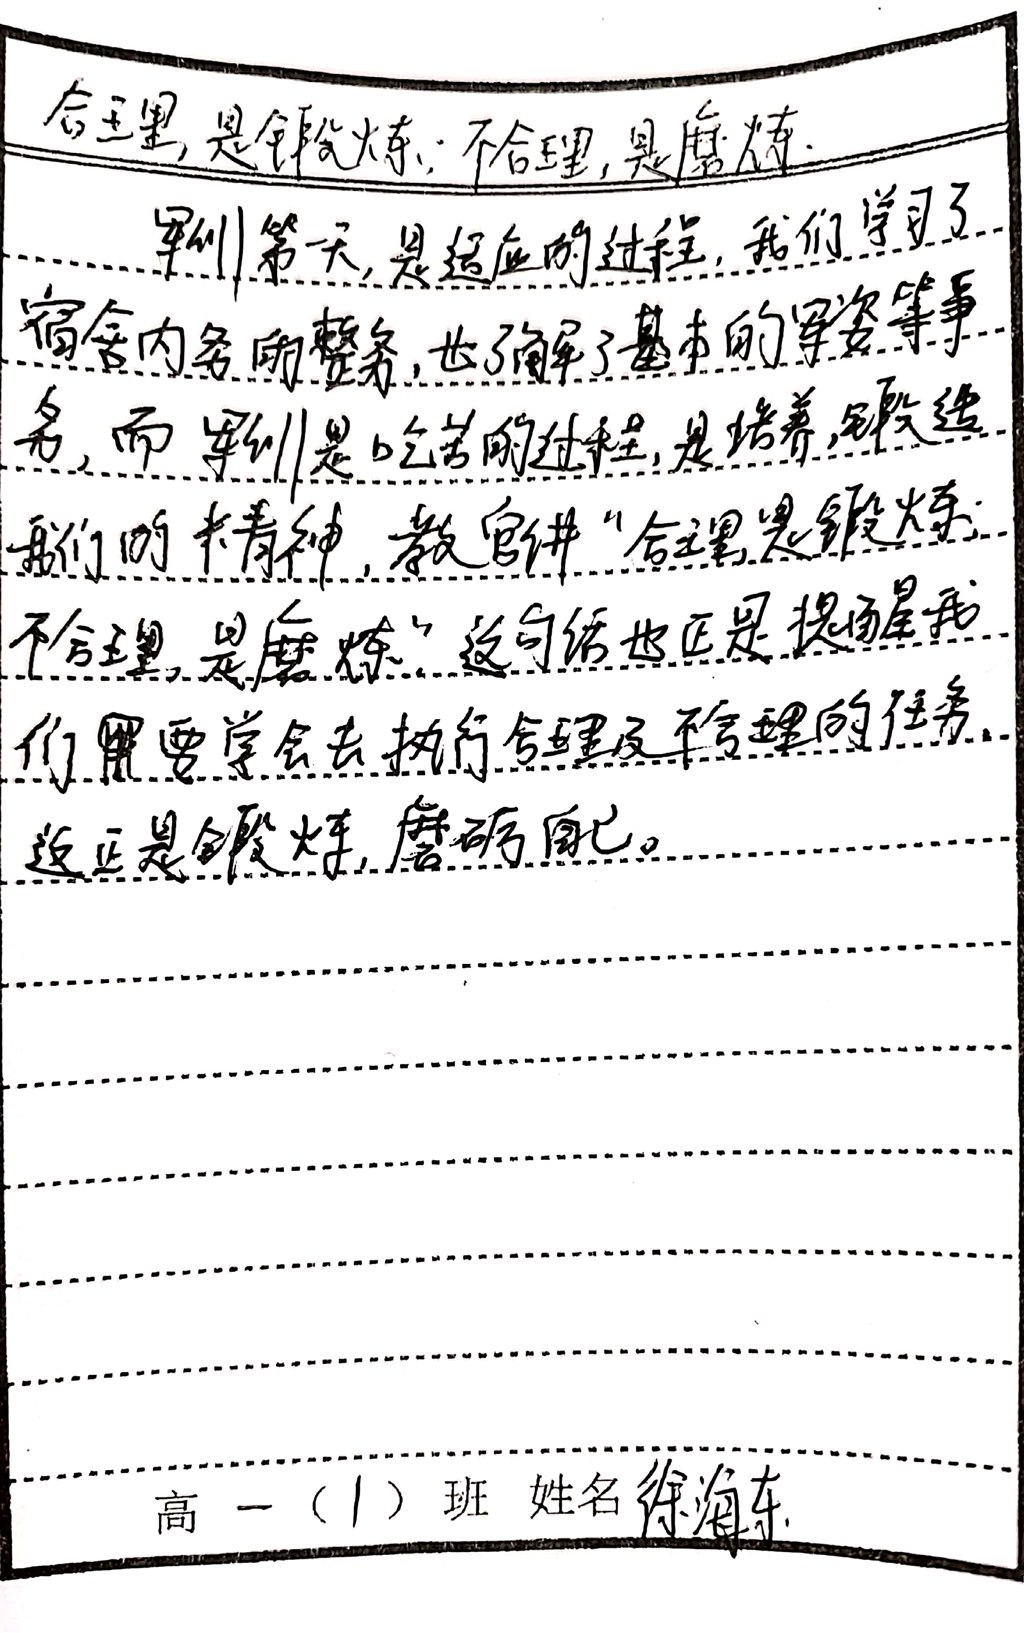 合理,是锻炼;不合理,是磨炼.
军训第一天,是适应的过程,我们学习了
宿舍内务的整务,也了解了基本的军姿等事
务,而军训是吃苦的过程,是培养,锻造
我们的精神,教官讲“合理,是锻炼;
不合理,是磨炼”,这句话也正是提醒我
们要学会去执行合理及不合理的任务,
这正是锻炼,磨砺自己。
高一(1)班 姓名徐海东